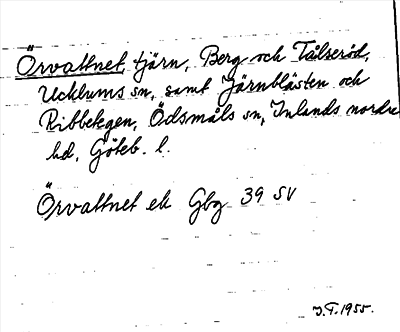 Örvattnet, tjärn, Berg och Tålseröd,
Ucklums sn, samt Järnblästen och
Ribbetegen, Ödsmåls sn, Inlands nordre
hd, Göteb. l.
Örvattnet ek Gbg 39 SV
J.T. 1955.